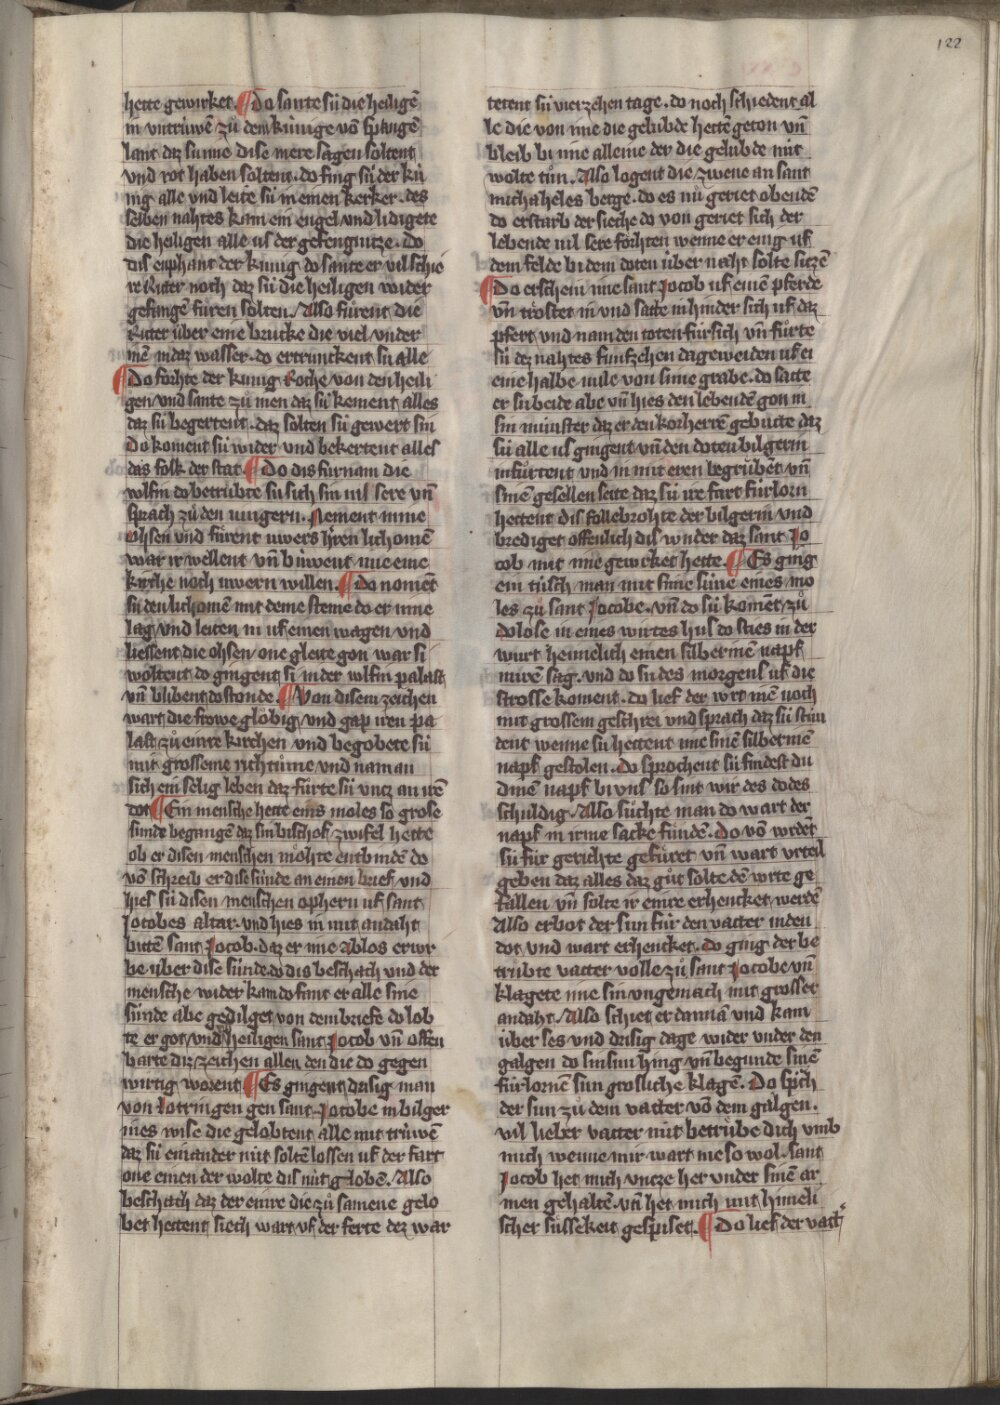 122
hette gewirket. ¶ Do sante sü die heiligē
in vntrúwē zů dem kúnige vō sp̄angē
lant daz sú ime dise mere sagen soltent
vnd rot haben soltent. do fing sú der kú
nig alle vnd leite sú in einen kerker. des
selben nahtes kam ein engel vnd lidigete
die heiligen alle us der gefengnitze. do
dis enphant der kunig do sante er vil schie
re Ritter noch daz sú die heiligen wider
gefangē fúren solten. Also fúrent die
Ritter úber eine brucke die viel vnder
inē in daz wasser. do ertrunckent sú alle
¶ Do fochte der kunig Roche von den heili
gen vnd sante zů inen daz sú kement alles
daz sú begertent. daz solten sú gewert sin
Do koment sú wider vnd bekertent alles
das folk der stat ¶ Do dis furnam die
wlfin do betrúbte sú sich sin vil sere vn̄
sprach zů den iungern. Nement mine
Ohsen vnd fúrent úwers h'ren lichomē
war ir wellent vn̄ búwent ime eine
kirche noch úwern willen. ¶ do nomēt
sú den lichomē mit deme steine do er inne
lag vnd leiten in uf einen wagen vnd
liessent die ohsen one gleite gon war si
woltent do gingent si in der wlfin palast
vn̄ blibent do stonde. ¶ Von disem zeichen
wart die frowe glöbig vnd gap iren pa
last zů einre kirchen vnd begobete sú
mit grosseme richtume vnd nam an
sich ein selig leben daz fúrte sú vncz an irē
dot ¶ Ein mensche hette eins moles so grose
sunde begangē daz sin bischof zwifel hette
ob er disen menschen möhte entbindē do
vō schreib er dise súnde an einen brief vnd
hies sú disen menschen ophern uf sant
Jocobes altar. vnd hies in mit andaht
bittē sant Jocob. daz er ime Ablos erwr
be úber dise súnde. do dis beschach vnd der
mensche wider kam do fant er alle sine
súnde abe gedilget von dem briefe do lob
te er got vnd heiligen sant Jocob vn̄ offen
barte diz zeichen allen den die do gegen
wirtig worent ¶ Es gingent drisig man
von Lotringen gen sant Jocobe in bilger
ines wise die gelobtent alle mit trúwē
daz sú einander nút soltē lossen uf der fart
one einen der wolte dis nút globē. Also
beschach daz der einre die zů samene gelo
bet hettent siech wart uf der ferte dez war
tetent sú vierzehen tage. do noch schiedent al
le die von ime die gelúbde hettē geton vn̄
bleib bi ime alleine der die gelubde nút
wolte tůn. Also logent die zwene an sant
michaheles berge. do es nů geriet obendē
do erstarb der sieche do von geriet sich der
lebende vil sere föchten wenne er einig uf
dem felde bi dem doten úber naht solte sitzē
¶ Do erschein ime sant Jocob uf einē pferde
vn̄ tröstet in vnd satte in hinder sich uf daz
pfert vnd nam den toten fúr sich vn̄ fúrte
sú dez nahtes funfzehen dageweiden uf ei
eine halbe mile von sime grabe. do satte
er sú beide abe vn̄ hies den lebendē gon in
sin múnster daz er den korherrē gebútte daz
sú alle us gingent vn̄ den doten bilgerin
infúrtent vnd in mit eren begrúbēt vn̄
sinē gesellen seite daz sú ire fart fúrlorn
hettent dis follebrohte der bilgerin vnd
brediget offenlich dis wnder daz sant Jo
cob mit ime gewrket hette. ¶ Es ging
ein túsch man mit sime sune eines mo
les zů sant Jocobe. vn̄ do sú komēt zů
dolose in eines wirtes hus do sties in der
wurt heimelich einen silberinē napf
in irē sag. vnd do sú des morgens uf die
strosse koment. do lief der wrt inē noch
mit grossem geschrei vnd sprach daz sú stún
dent wenne sú hettent ime sinē silberinē
napf gestolen. do sprochent sú findest du
dinē napf bi vns so sint wir des dodes
schuldig. Also súchte man do wart der
napf in irme sacke fundē. Do vō wrdēt
sú fúr gerichte gefúret vn̄ wart vrteil
geben daz alles daz gůt solte dē wrte ge
fallen vn̄ solte ir einre erhencket werdē
Also erbot der sun fúr den vatter in den
dot vnd wart erhencket. do ging der be
trúbte vatter volle zů sant Jocobe vn̄
klagete ime sin vngemach mit grosser
andaht. Also schiet er dannā vnd kam
úber ses vnd drisig dage wider vnder den
galgen do sin sun hing vn̄ begunde sinē
fúrlornē sun grosliche klagē. Do sp̄ch
der sun zů dem vatter vō dem galgen.
vil lieber vatter nút betrúbe dich vmb
mich wenne mir wart nie so wol. sant
Jocob het mich vncze her vnder sinē ar
men gehaltē. vn̄ het mich mit himeli
scher sússekeit gespiset. ¶ Do lief der vatt'